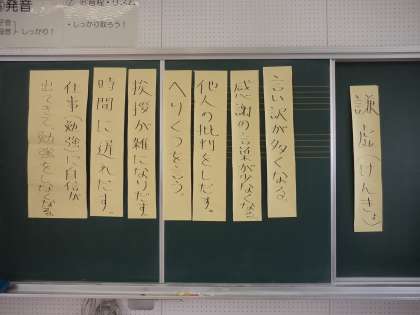 発音
音程・リズム
しっかり！
・しっかり取ろう！
謙虚(けんきょ)
言い訳が多くなる。
感謝の言葉が少なくなる。
他人の批判をしだす。
へりくつをいう。
挨拶が雑になりだす。
時間に遅れだす。
仕事(勉強)に自信が
出てきて勉強をしなくなる。